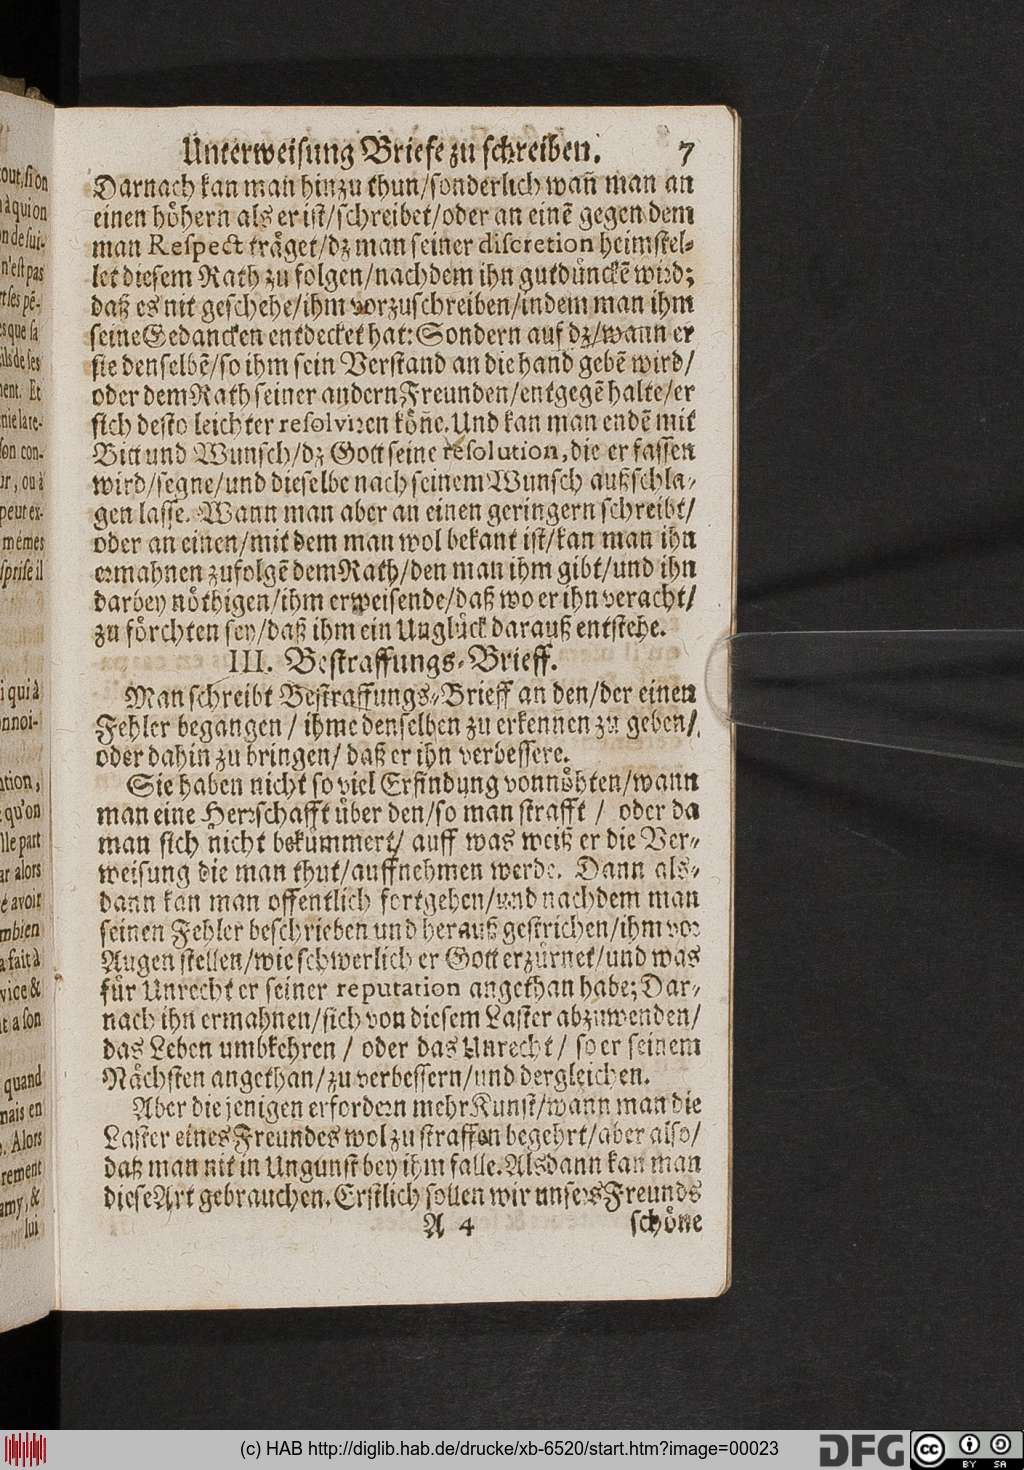 out, si on
à qui on
n'est pas
ses pē-
ils de ses
ment. Et
son con-
ou à
peut ex-
mémes
il
i qui à
ation,
qu'on
lle part
ar alors
avoir
mbien
a fait à
vice &
it a son
quand
mais en
Alors
amy, &
lui
Unterweisung Briefe zu schreiben. 7
Darnach kan man hinzu thun/sonderlich wañ man an
einen höhern als er ist/schreibet/oder an einē gegen dem
man Respect träget/dz man seiner discretion heimstel-
let diesem Rath zu folgen/nachdem ihn gutdünckē wird;
daß es nit geschehe/ihm vorzuschreiben/indem man ihm
seine Gedancken entdecket hat: Sondern auf dz/wann er
sie denselbē/so ihm sein Verstand an die hand gebē wird/
oder dem Rath seiner andern Freunden/entgegē halte/er
sich desto leichter resolviren köñe. Und kan man endē mit
Bitt und Wunsch/dz Gott seine resolution, die er fassen
wird/segne/und dieselbe nach seinem Wunsch außschla-
gen lasse. Wann man aber an einen geringern schreibt/
oder an einen/mit dem man wol bekant ist/kan man ihn
ermahnen zufolgē dem Rath/den man ihm gibt/und ihn
darbey nöthigen/ihm erweisende/daß wo er ihn veracht/
zu förchten sey/daß ihm ein Unglück darauß entstehe.
III. Bestraffungs-Brieff.
Man schreibt Bestraffungs-Brieff an den/der einen
Fehler begangen / ihme denselben zu erkennen zu geben/
oder dahin zu bringen/ daß er ihn verbessere.
Sie haben nicht so viel Erfindung vonnöhten/wann
man eine Herrschafft über den/so man strafft / oder da
man sich nicht bekümmert/ auff was weiß er die Ver-
weisung die man thut/auffnehmen werde. Dann als-
dann kan man offentlich fortgehen/und nachdem man
seinen Fehler beschrieben und herauß gestrichen/ihm vor
Augen stellen/wie schwerlich er Gott erzürnet/und was
für Unrecht er seiner reputation angethan habe; Dar-
nach ihn ermahnen/sich von diesem Laster abzuwenden/
das Leben umbkehren / oder das Unrecht / so er seinem
Nächsten angethan/zu verbessern/und dergleichen.
Aber die jenigen erfordern mehr Kunst/wann man die
Laster eines Freundes wol zu straffen begehrt/aber also/
daß man nit in Ungunst bey ihm falle. Alsdann kan man
diese Art gebrauchen. Erstlich sollen wir unsers Freunds
A 4 schöne
(c) HAB http://diglib.hab.de/drucke/xb-6520/start.htm?image=00023
DFG cc BY SA